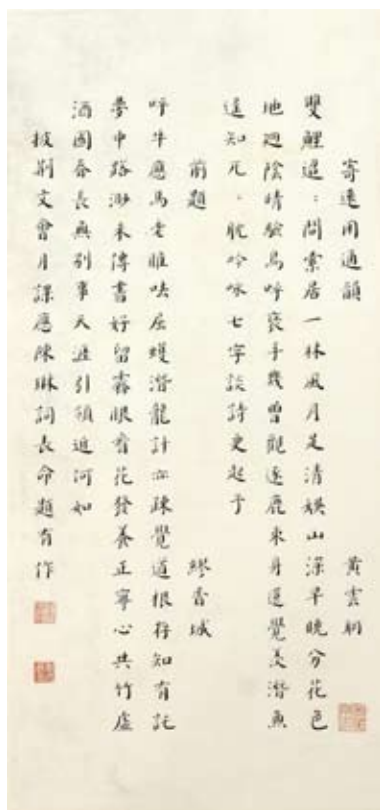 寄遠用通韻 黃雲
雙鯉迢：問索居一林風月足清娛山深早晚分花色
地迥陰晴驗鳥呼褒手幾曾觀逐鹿來身還覺羨潛魚
遠知兀：耽吟咏七字談詩更起予
前題 繆香城
呼牛應馬老睢呿屈蠖潛龍計亦疎覺道根存知有託
夢中路渺未傳書好留霧眼看花發養正寧心共竹虛
酒國春長無別事天涯引領近何如
披荊文會月課應陳琳詞長命題有作